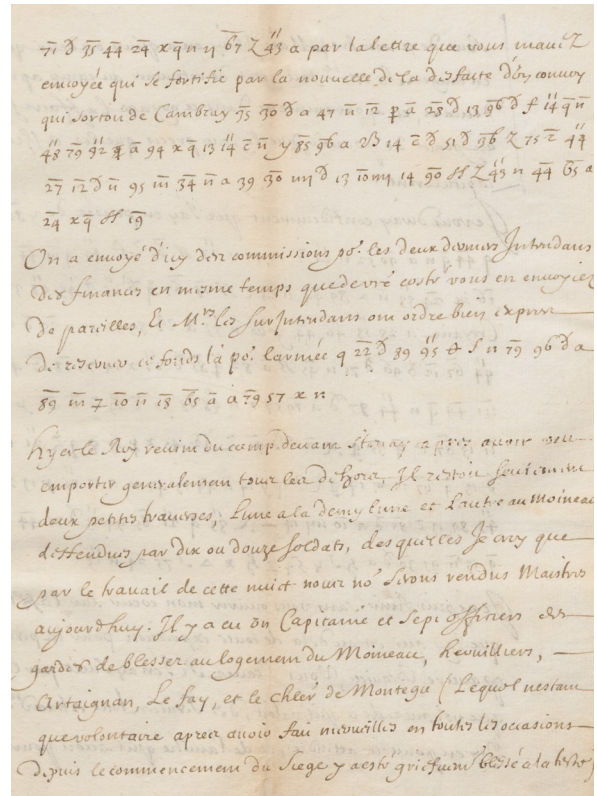 71 d 35 44 24 x q̄ n η 67 Z 43 a par la lettre que vous mauéz
envoyée qui se fortifie par la nouvelle de la desfaite d'un convoy
qui sortoit de Cambray 95 30 d a 47 n̄ 12 p ā 28 d 13 96 d f 14 q̄ n̄
48 79 82 ā 94 x q̄ 13 14 c̄ n̄ y 85 96 a 14 c̄ d 51 d 96 Z 75 c̄ 44
27 12 d n̄ 95 m̄ 34 n̄ a 39 30 d 13 10 14 90 H Z 43 n̄ 44 65 a
24 x q̄ H 19
On a envoyé d'icy des commissions po.r les deux derniers Intendans
des finances en mesme temps que de vr̃e costé vous en envoyiez
de pareilles, Et M.rs les Surintendans ont ordre bien exprez
de reserver ce fonds là po.r l'armée q 22 d 89 95 & f n 79 96 d a
89 m̄ 7 10 n̄ 18 65 ā a 79 57 x n
Hyer le Roy revint du camp devant Stenay apres avoir veu
emporter generalement tous les dehors, Il restoit seulement
deux petites traverses, L'une a la demy lune et L'autre au Moineau
deffendues par dix ou douze soldats, desquelles Je croy que
par le travail de cette nuict nous no.s serons rendus Maistres
aujourd'huy. Il y a eu un Capitaine et sept officiers des
gardes de blessez au logement du Moineau,
Artaignan, Le fay, et le chlẽr de Montegu (Lequel n'estant
que volontaire apres avoir fait merveilles en toutes les occasions
depuis le commencement du Siege y a esté griefvem.t blessé a la teste)